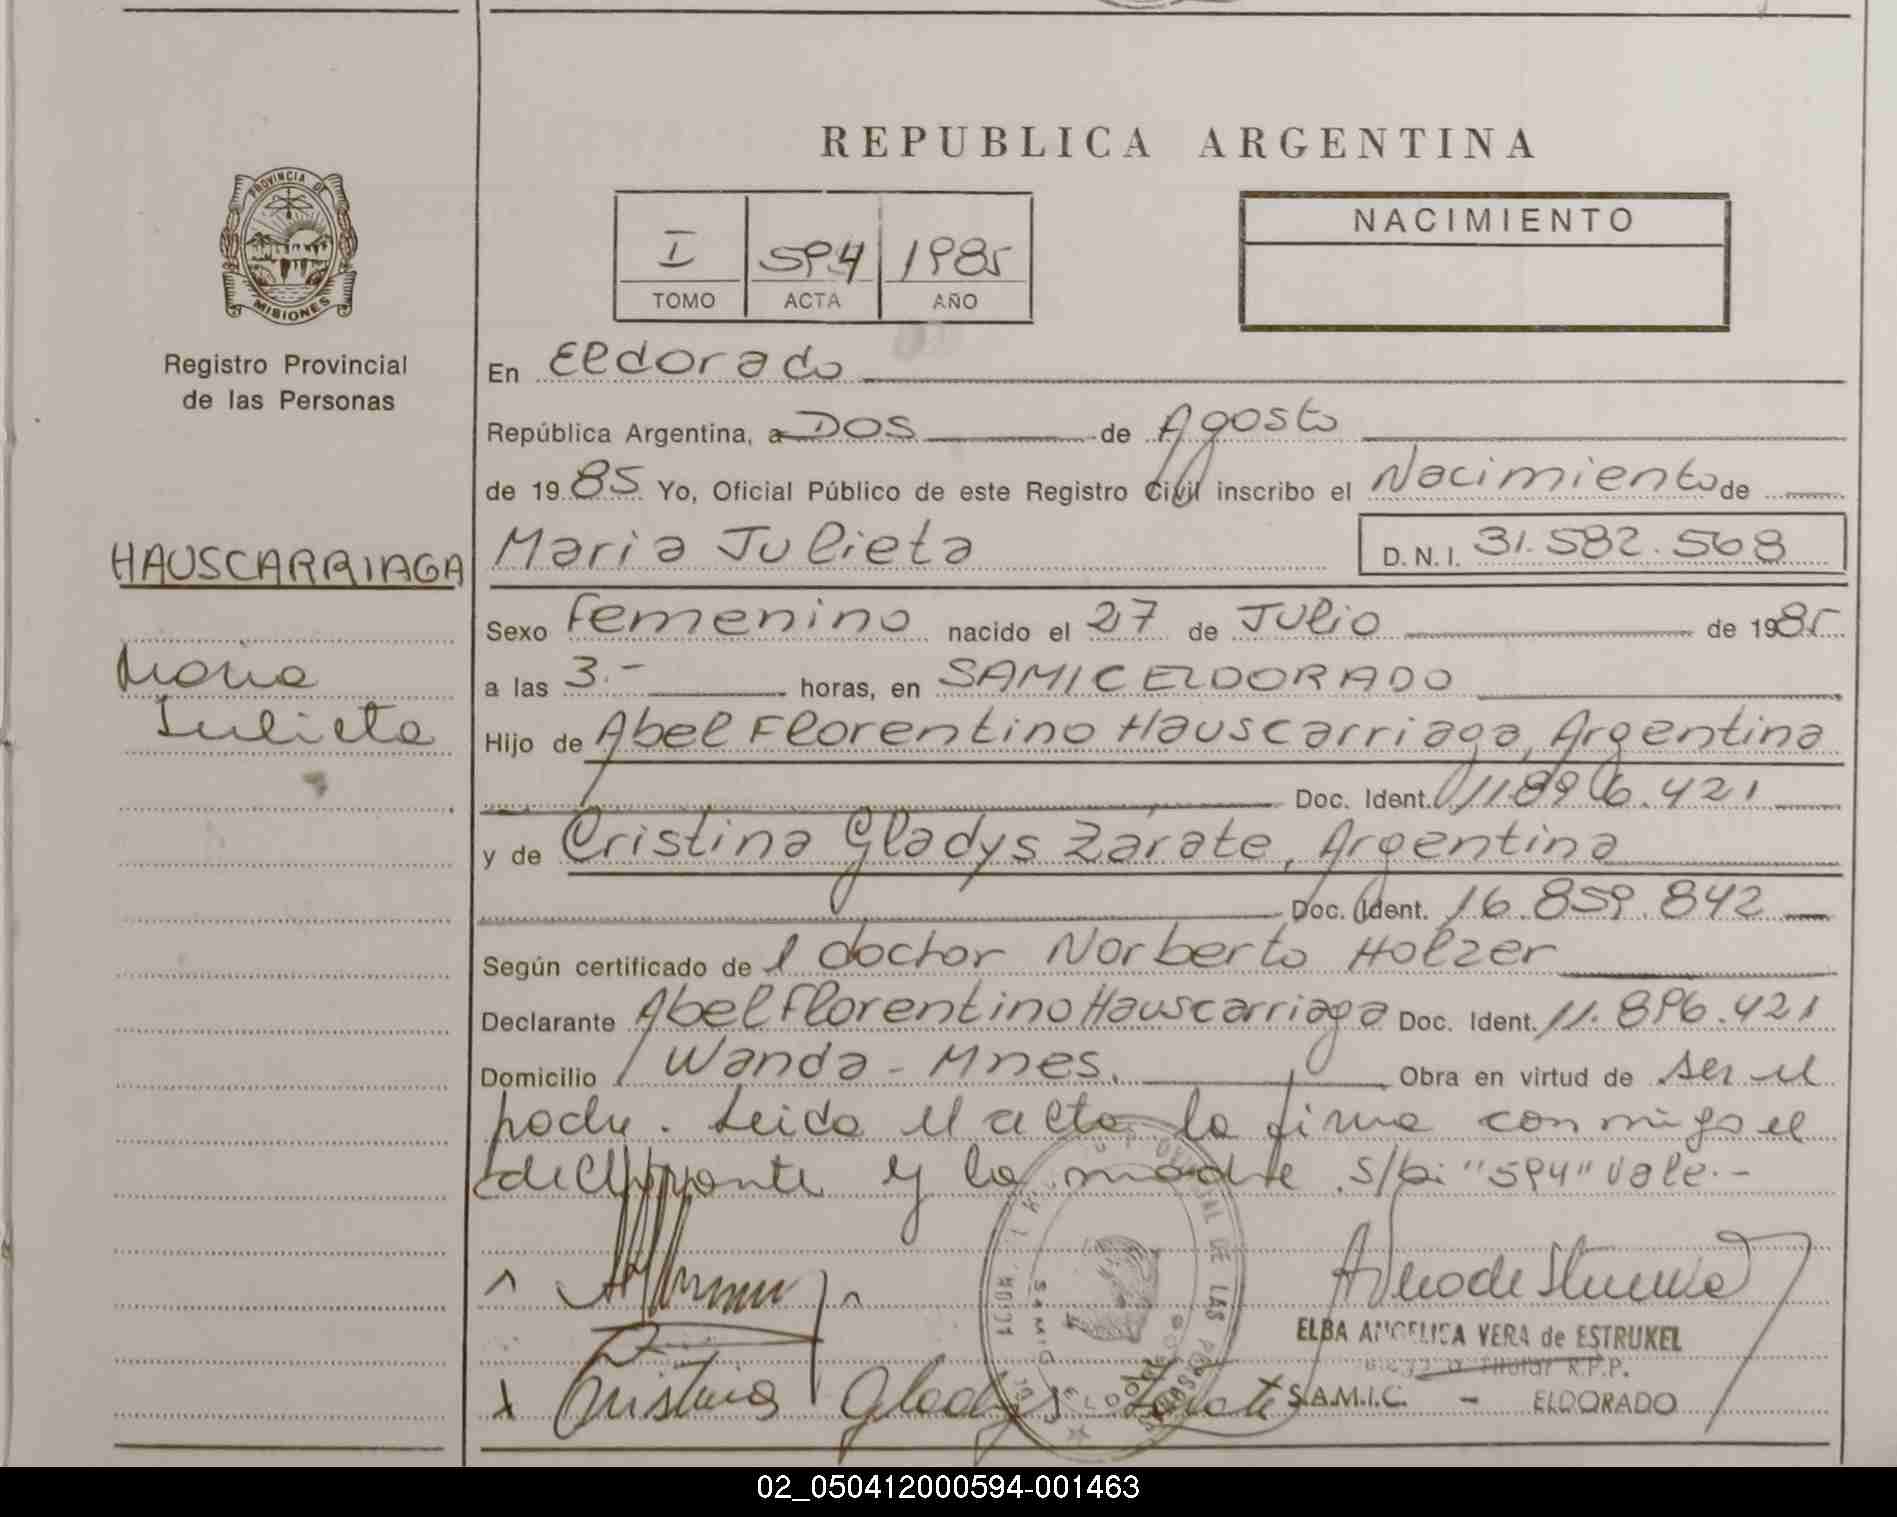 REPUBLICA ARGENTINA
PROVINCIA DE
MISIONES
Registro Provincial
de las Personas
I 594 1985
TOMO ACTA AÑO
NACIMIENTO
En Eldorado
República Argentina, a DOS de Agosto
de 1985 Yo, Oficial Público de este Registro Civil inscribo el Nacimiento de
HAUSCARRIAGA
Maria Julieta D.N.I. 31.582.568
Maria
Julieta
Sexo Femenino nacido el 27 de Julio de 1985
a las 3.- horas, en SAMIC ELDORADO
Hijo de Abel Florentino Hauscarriaga, Argentina
Doc. Ident. 11.896.421
y de Cristina Gladys Zárate, Argentina
Doc. Ident. 16.859.842
Según certificado de l doctor Norberto Holzer
Declarante Abel Florentino Hauscarriaga Doc. Ident. 11.896.421
Domicilio Wanda - Mnes. Obra en virtud de ser el
padre. Leida el acta la firma conmigo el
declarante y la madre. S/b: "594" Vale.-
ELBA ANGELICA VERA de ESTRUKEL
Titular R.P.P.
Cristina Gladys Zarate
S.A.M.I.C. - ELDORADO
02_050412000594-001463